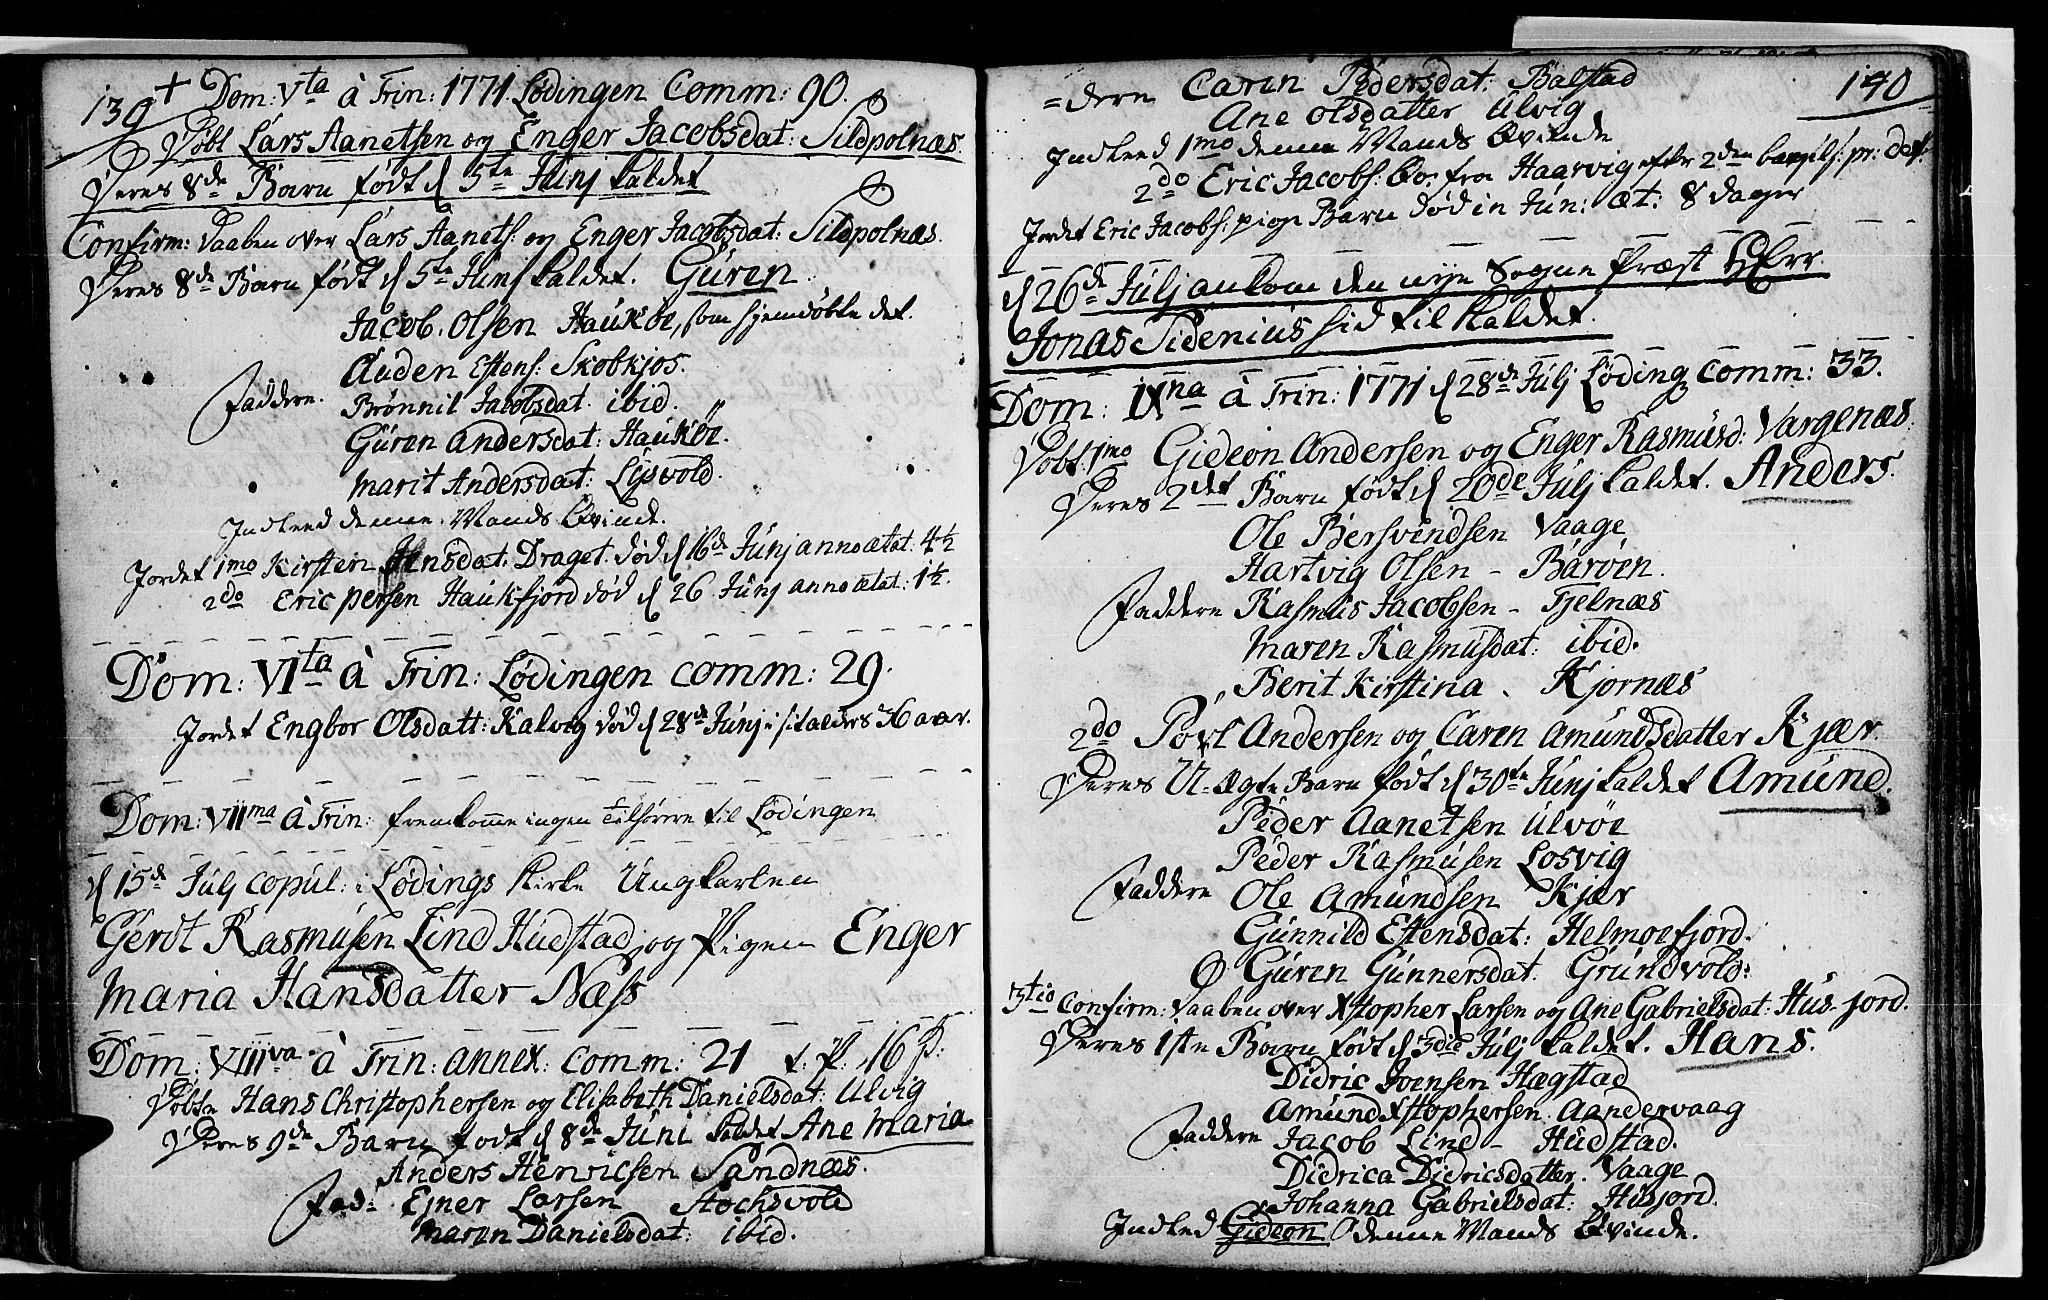 139 + Dom: Vta à Trin: 1771 Lødingen Comm: 90.
Døbt Lars Aanetsen og Enger Jacobsdat: Sildpolnæs.
Deres 8de Barn født d 5te Junj kaldet
Confirm: Daaben over Lars Aanets: og Enger Jacobsdat: Sildpolnæs.
Deres 8de Barn født d 5te Junj kaldet. Guren
Jacob Olsen Haukøe, som hjemdøbte det.
Auden Estens: Skobkjos.
Faddere. Brønnil Jacobsdat. ibid.
Guren Andersdat: Haukøe.
Marit Andersdat: Lijsvold.
Indleed denne Mands Qvinde.
Jordet 1mo Kirsten Jensdat. Draget. død d 16de Junj anno ætat: 4½
2do Eric persen Haukfjord død d 26 Junj anno ætat: 1½.
Dom: VIta à Trin: Lødingen comm: 29.
Jordet Engbor Olsdatt: Kalvig død d 28de Junj i sit alders 36 aar.
Dom: VIIma à Trin: fremkomme ingen Tilhørere til Lødingen
d 15de Julj copul: i Lødings Kirke Ungkarlen
Gerdt Rasmusen Lind Hudstad, og Pigen Enger
Maria Hansdatter Næss
Dom: VIIIva à Trin: annex: comm: 21 t. P: 16 P:
Døbte Hans Christophersen og Elisabeth Danielsdat: Ulvig
Deres 9de Barn født d 8de Juni kaldet Ane Maria
Anders Henricsen Sandnæs.
Fad: Ejner Larsen Stochsvold
Maren Danielsdat: ibid.
140
=dere Caren Pedersdat: Balstad
Ane Olsdatter Ulvig
Indleed 1mo denne Mands Qvinde
2do Eric Jacobs: Qv. fra Haarvig efter 2den
Jordet Eric Jacobs: pige Barn død in Jun: æt: 8 dager
d 26de Julj ankom den nye Sogne Præst Herr.
Jonas Sidenius hid til kaldet.
Dom: IXna à Trin: 1771 d 28de Julj Løding Comm: 33.
Døbt 1mo Gideon Andersen og Enger Rasmusd: Vargenæs.
Deres 2det Barn født d 20de Julj kaldet. Anders.
Ole Bersvindsen Vaage
Hartvig Olsen - Barøen.
Faddere Rasmus Jacobsen - Tjelnæs
Maren Rasmusdat: ibid.
Berit Kirstina. Kjornæs
2do Povl Andersen og Caren Amundsdatter Kjær.
Deres U-Ægte Barn født d 30te Junj kaldet Amund.
Peder Aanetsen Ulvøe
Peder Rasmusen Losvig
Faddere Ole Amundsen Kjær
Gunnild Estensdat: Helmoefjord.
Guren Gunnersdat. Grundvold:
3tio Confirm: Daaben over Xstopher Larsen og Ane Gabrielsdat: Husjord.
Deres 1ste Barn født d 3die Julj kaldet. Hans.
Didric Joensen Hægstad
Amund Xstophersen. Aandervaag
Faddere Jacob Lind - Hudstad.
Didrica Didricsdatter. Vaage
Johanna Gabrielsdat: Husjord.
Indled Gideon denne Mands Qvinde.